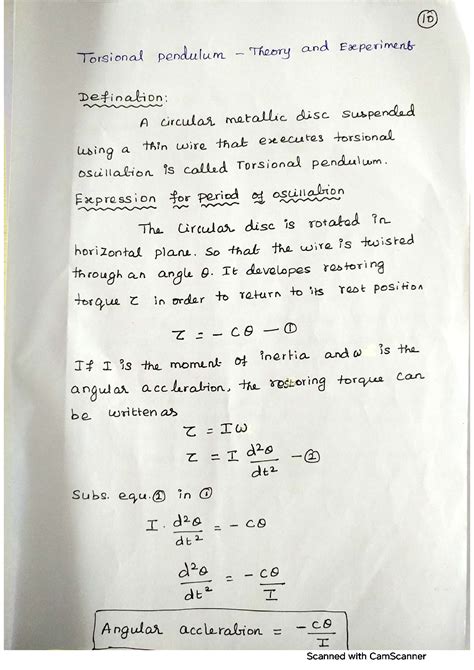 10
Torsional pendulum - Theory and Experiment
Defination:
A circular metallic disc suspended
using a thin wire that executes torsional
oscillation is called Torsional pendulum.
Expression for period of oscillation
The circular disc is rotated in
horizontal plane. So that the wire is twisted
through an angle θ. It developes restoring
torque τ in order to return to its rest position
τ = - cθ — ①
If I is the moment of inertia and ω is the
angular accleration, the restoring torque can
be written as
τ = Iω
τ = I d²θ/dt² — ②
Subs. equ. ② in ①
I. d²θ/dt² = - cθ
d²θ/dt² = - cθ/I
Angular accleration = - cθ/I
Scanned with CamScanner